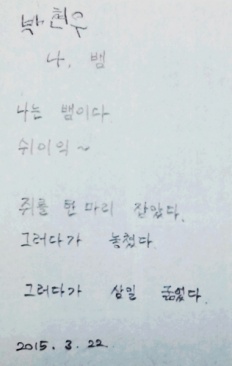 박현우
나, 뱀
나는 뱀이다
쉬이익~
쥐를 한 마리 잡았다.
그러다가 놓쳤다.
그러다가 삼일 굶었다.
2015. 3. 22